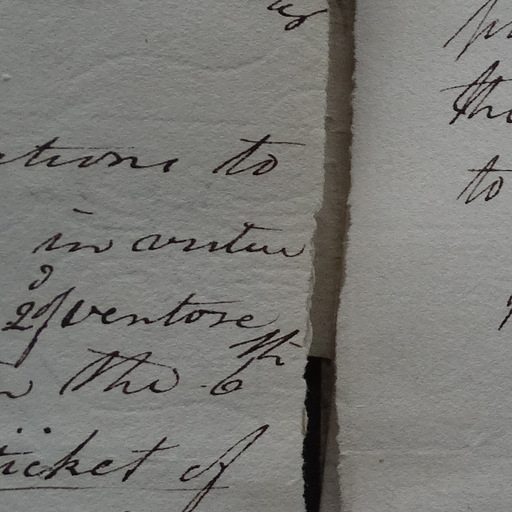 us
ations to
in virtue
2d ventose
the 6th
ticket of
the
to